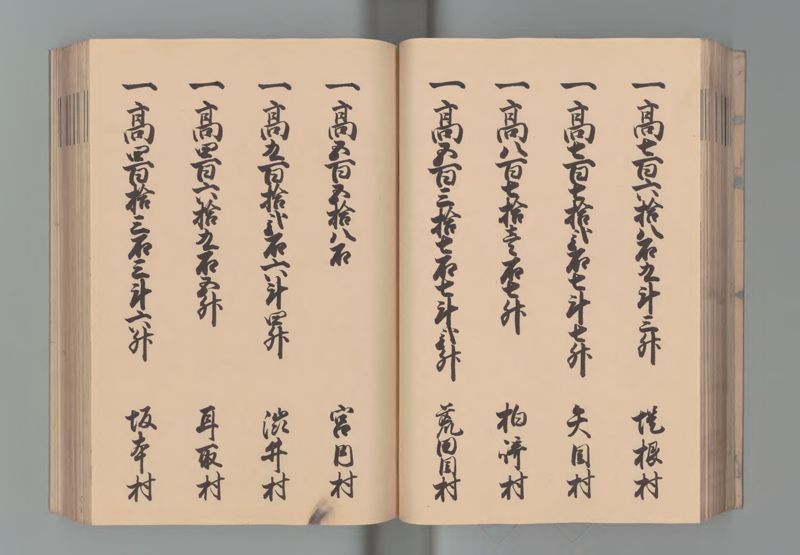 一高七百六拾八石九斗三升 塊根村
一高七百七拾弐石七斗七升 矢目村
一高八百七拾壱石七升 柏崎村
一高五百三拾七石七斗弐升 荒田目村
一高五百五拾八石 宮円村
一高九百拾弐石六斗四升 渋井村
一高四百六拾九石五升 耳取村
一高四百拾三石三斗六升 坂本村